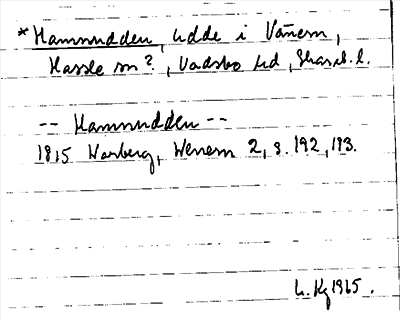 *Hamnudden, udde i Vänern,
Hassle sn?, Vadsbo hd, Skarab. l.
-- Hamnudden --
1815 Warberg, Wenern 2, s. 192, 193.
1965.